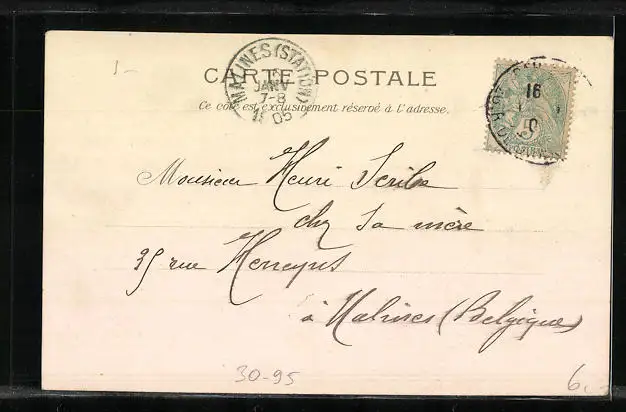 MALINES (STATION)
JANV
7-8
05
CARTE POSTALE
Ce côté est exclusivement réservé à l'adresse.
16
Monsieur Henri Scribe
chez sa mère
35 rue
à Malines (Belgique)
30-95
6.